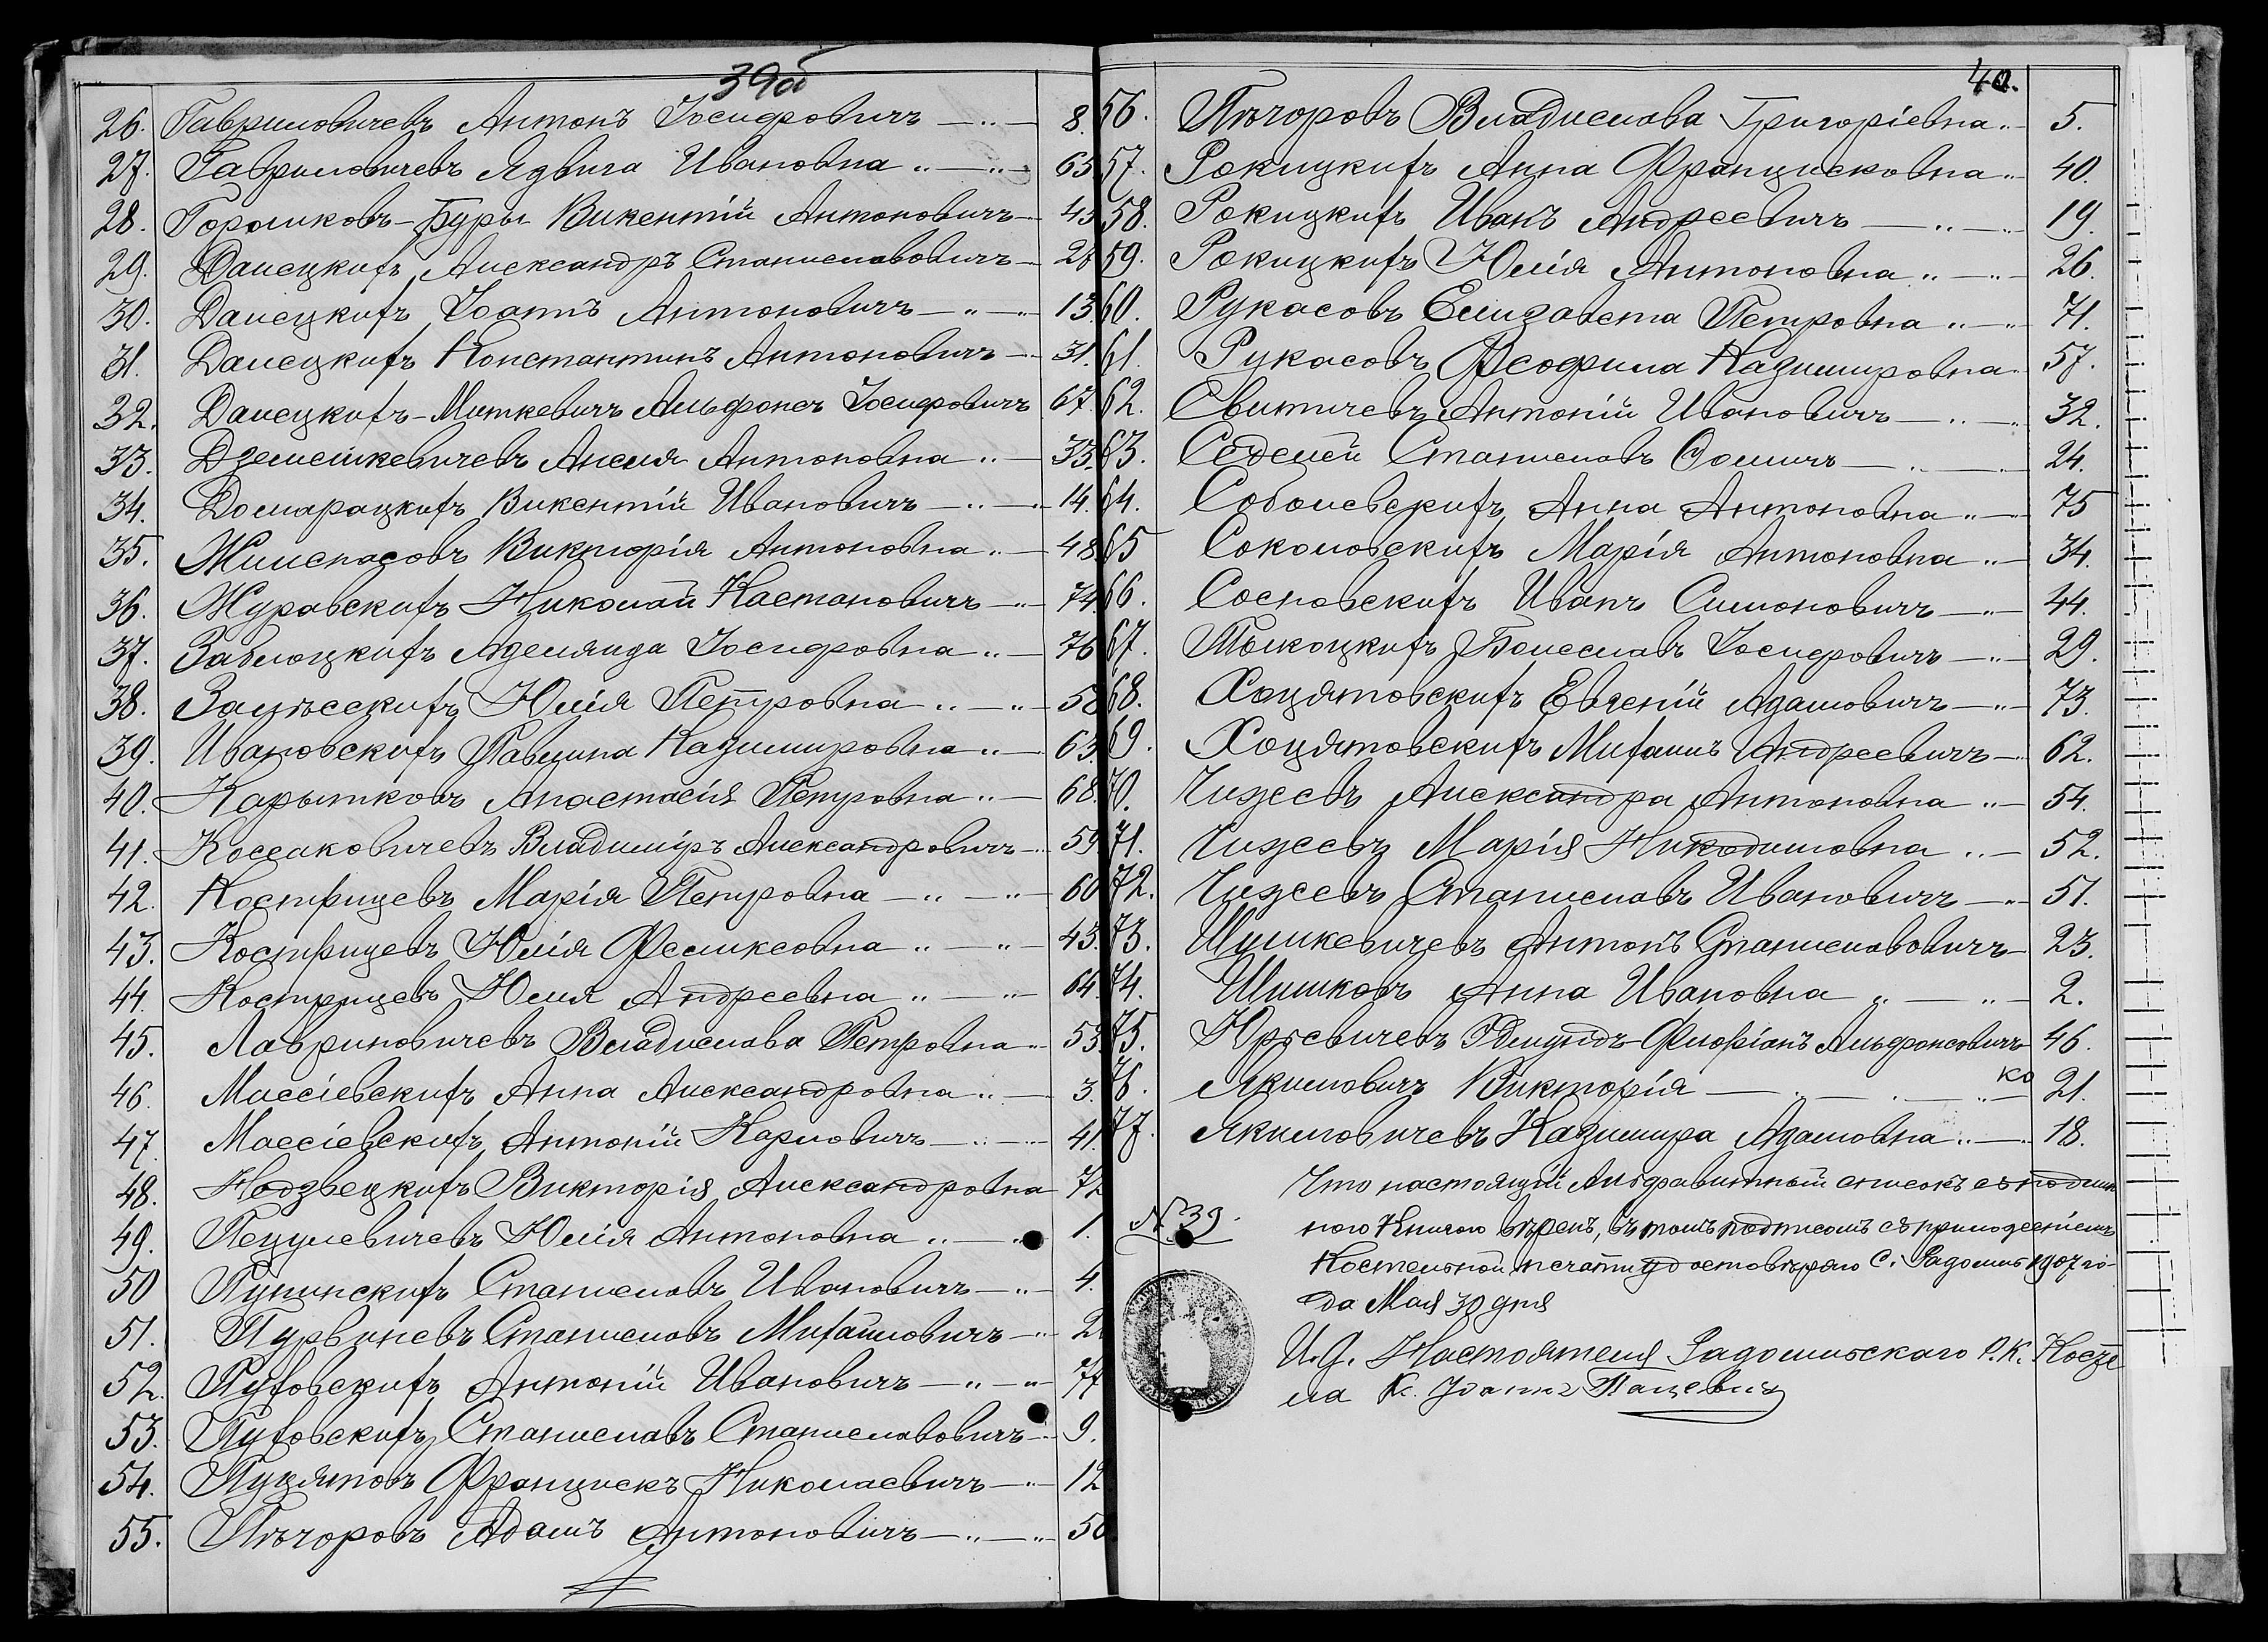 39об
26. Гавриловичевъ Антонъ Іосифовичъ — 8.
27. Гавриловичевъ Ядвига Ивановна — 65
28. Горошковъ-Буры Викентій Антоновичъ — 45
29. Далецкихъ Александръ Станиславовичъ — 28
30. Далецкихъ Іоаннъ Антоновичъ — 13.
31. Далецкихъ Константинъ Антоновичъ — 31.
32. Далецкихъ-Миткевичъ Альфонсъ Іосифовичъ 67.
33. Дземешкевичевъ Анеля Антоновна — 33.
34. Домарацкихъ Викентій Ивановичъ — 14.
35. Жилспасовъ Викторія Антоновна — 48
36. Журавскихъ Николай Кастановичъ — 74
37. Заблоцкихъ Аделяида Іосифовна — 76
38. Залѣсскихъ Юлія Петровна — 58
39. Ивановскихъ Павлина Казимировна — 63.
40. Карытковъ Анастасія Петровна — 68.
41. Коссаковичевъ Владиміръ Александровичъ — 59
42. Кострицевъ Марія Петровна — 60
43. Кострицевъ Юлія Феликсовна — 43.
44. Кострицевъ Юлія Андреевна — 64.
45. Лавриновичевъ Владислава Петровна 53
46. Массіевскихъ Анна Александровна — 3.
47. Массіевскихъ Антоній Карловичъ — 41.
48. Недзвецкихъ Викторія Александровна 72
49. Пецулевичевъ Юлія Антоновна — 1.
50 Пупинскихъ Станиславъ Ивановичъ — 4.
51. Пурвиневъ Станиславъ Михайловичъ — 2
52. Пуховскихъ Антоній Ивановичъ — 77
53. Пуховскихъ Станиславъ Станиславовичъ — 9.
54. Пуцятовъ Францискъ Николаевичъ — 12
55. Пѣгоровъ Адамъ Антоновичъ — 50
40.
56. Пѣгоровъ Владислава Григоріевна 5.
57. Рокицкихъ Анна Францисковна 40.
58. Рокицкихъ Иванъ Андреевичъ — 19.
59. Рокицкихъ Юлія Антоновна — 26.
60. Рукасовъ Елизавета Петровна — 71.
61. Рукасовъ Феофила Казимировна 57.
62. Свитичевъ Антоній Ивановичъ — 32.
63. Седелей Станиславъ Фомичъ — 24.
64. Соболевскихъ Анна Антоновна — 75
65 Соколовскихъ Марія Антоновна — 34.
66. Сосновскихъ Иванъ Симоновичъ — 44.
67. Толкоцкихъ Болеславъ Іосифовичъ — 29.
68. Хоцятовскихъ Евгеній Адамовичъ — 73.
69. Хоцятовскихъ Михаилъ Андреевичъ — 62.
70. Чижевъ Александра Антоновна — 54.
71. Чижевъ Марія Никодимовна — 52.
72. Чижевъ Станиславъ Ивановичъ — 51.
73. Шулькевичевъ Антонъ Станиславовичъ 23.
74. Шишковъ Анна Ивановна — 2.
75. Юрьевичевъ Эдмундъ-Флоріанъ Альфонсовичъ 46.
76. Якимовичъ Викторія — 21.
77. Якимовичевъ Казимира Адамовна — 18.
Что настоящій Альфавитный списокъ съ подлин
№ 39. ною Книгою вѣренъ, въ томъ подписомъ съ приложеніемъ
Костельной печати удостовѣряю С. Радошль 1907 го-
да Мая 30 дня
И. д. Настоятеля Радошльскаго Р. К. Косте
ла К. Іоаннъ Пацевичъ